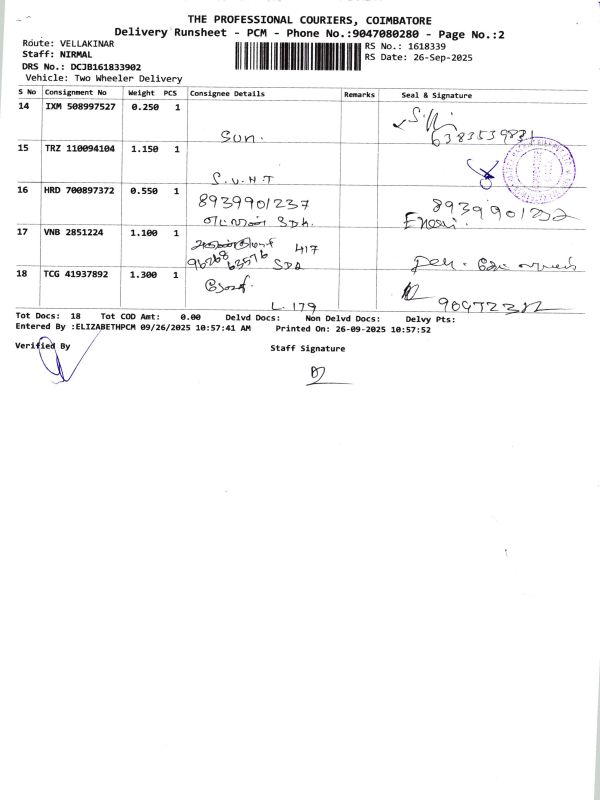 THE PROFESSIONAL COURIERS, COIMBATORE
Delivery Runsheet - PCM - Phone No.:9047080280 - Page No.:2
Route: VELLAKINAR
RS No.: 1618339
Staff: NIRMAL
RS Date: 26-Sep-2025
DRS No.: DCJB161833902
Vehicle: Two Wheeler Delivery
S No Consignment No Weight PCS Consignee Details Remarks Seal & Signature
14 IXM 508997527 0.250 1
sun.
15 TRZ 110094104 1.150 1
S.V.H.T
16 HRD 700897372 0.550 1
8939901237
17 VNB 2851224 1.100 1
417
96268 63576 SDA
18 TCG 41937892 1.300 1
L. 179
Tot Docs: 18 Tot COD Amt: 0.00 Delvd Docs: Non Delvd Docs: Delvy Pts:
Entered By :ELIZABETHPCM 09/26/2025 10:57:41 AM Printed On: 26-09-2025 10:57:52
Verified By
Staff Signature